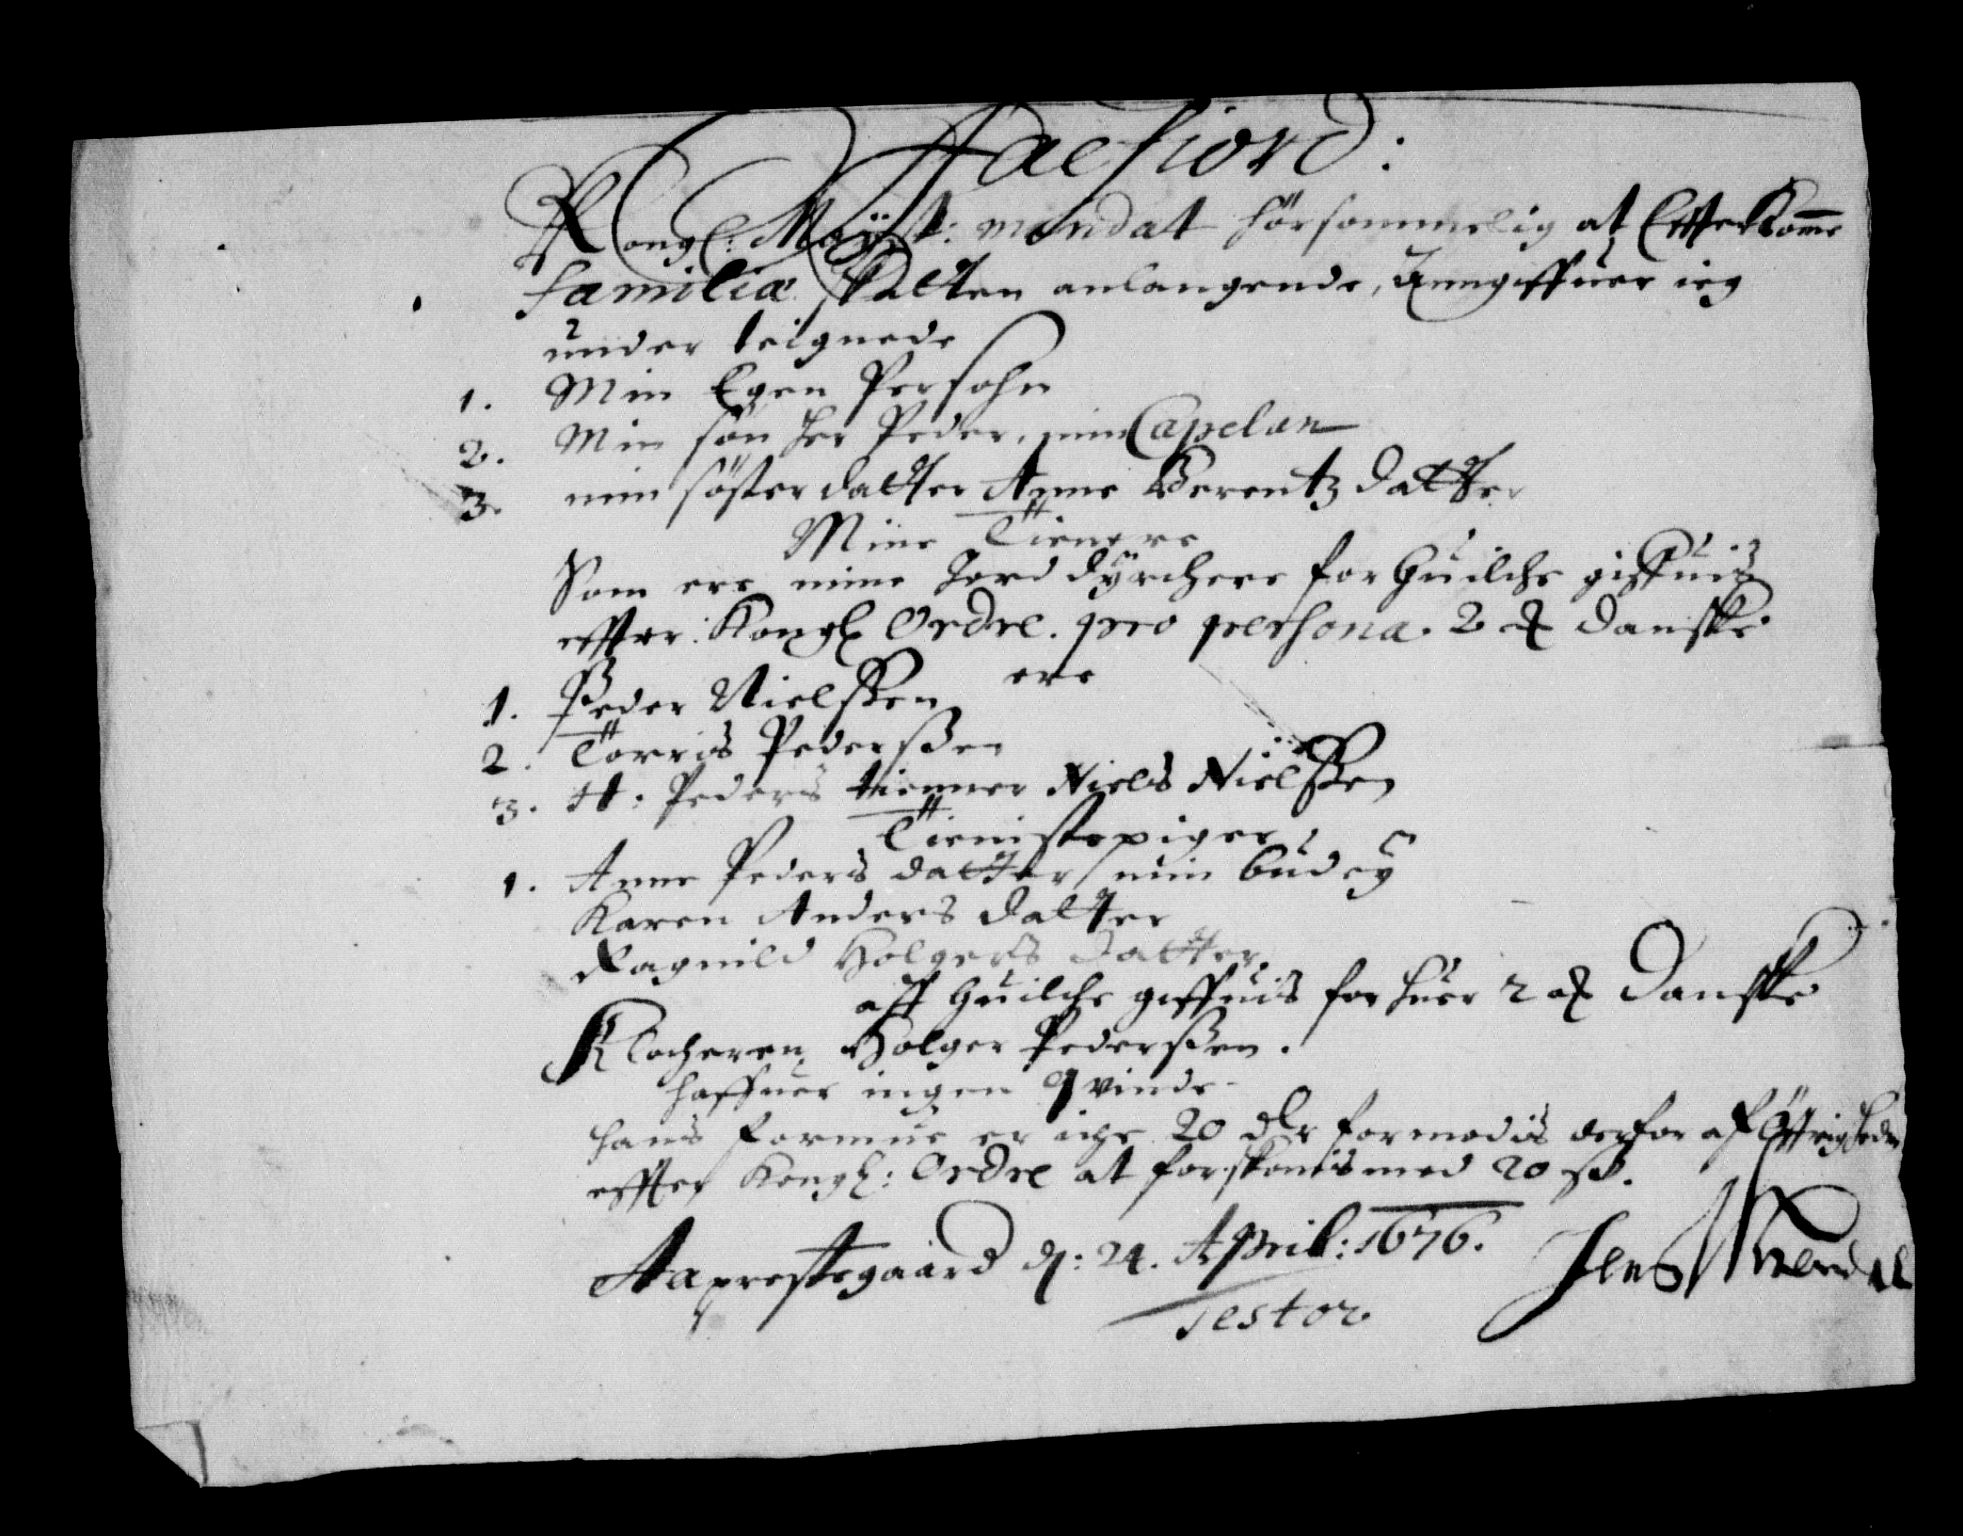 Aaefiord:
Kongl: Mayst: mandat hörsommelig at Effterkomme
familiæ Skatten anlangende, Anngiffuer ieg
under teignede
1. Min Egen Persohn
2. Min sön Her Peder, min Capelan
3. min söster datter Anne Berentz datter
Mine Tienere
Som ere mine Jord dÿrchere for huilche giffuis
effter Kongl Ordre. pro persona. 2 ß danske
ere
1. Peder Nielssen
2. Torris Pederssen
3. H: Peders tienner Niels Nielssen
Tienistepiger
1. Anne Peders datter min budeÿ
Karen Anders datter
Ragnild Holgers datter
aff huilche giffuis for huer 2 ß Danske
Klocheren Holger Pederssen.
haffuer ingen Qvinde
hans formue er iche 20 dlr formodis derfor af Öffrigheden
effter Kongl: Ordre at forskonis med 20 ß.
Aaprestegaard d: 24. April: 1676.
Jens
Testor